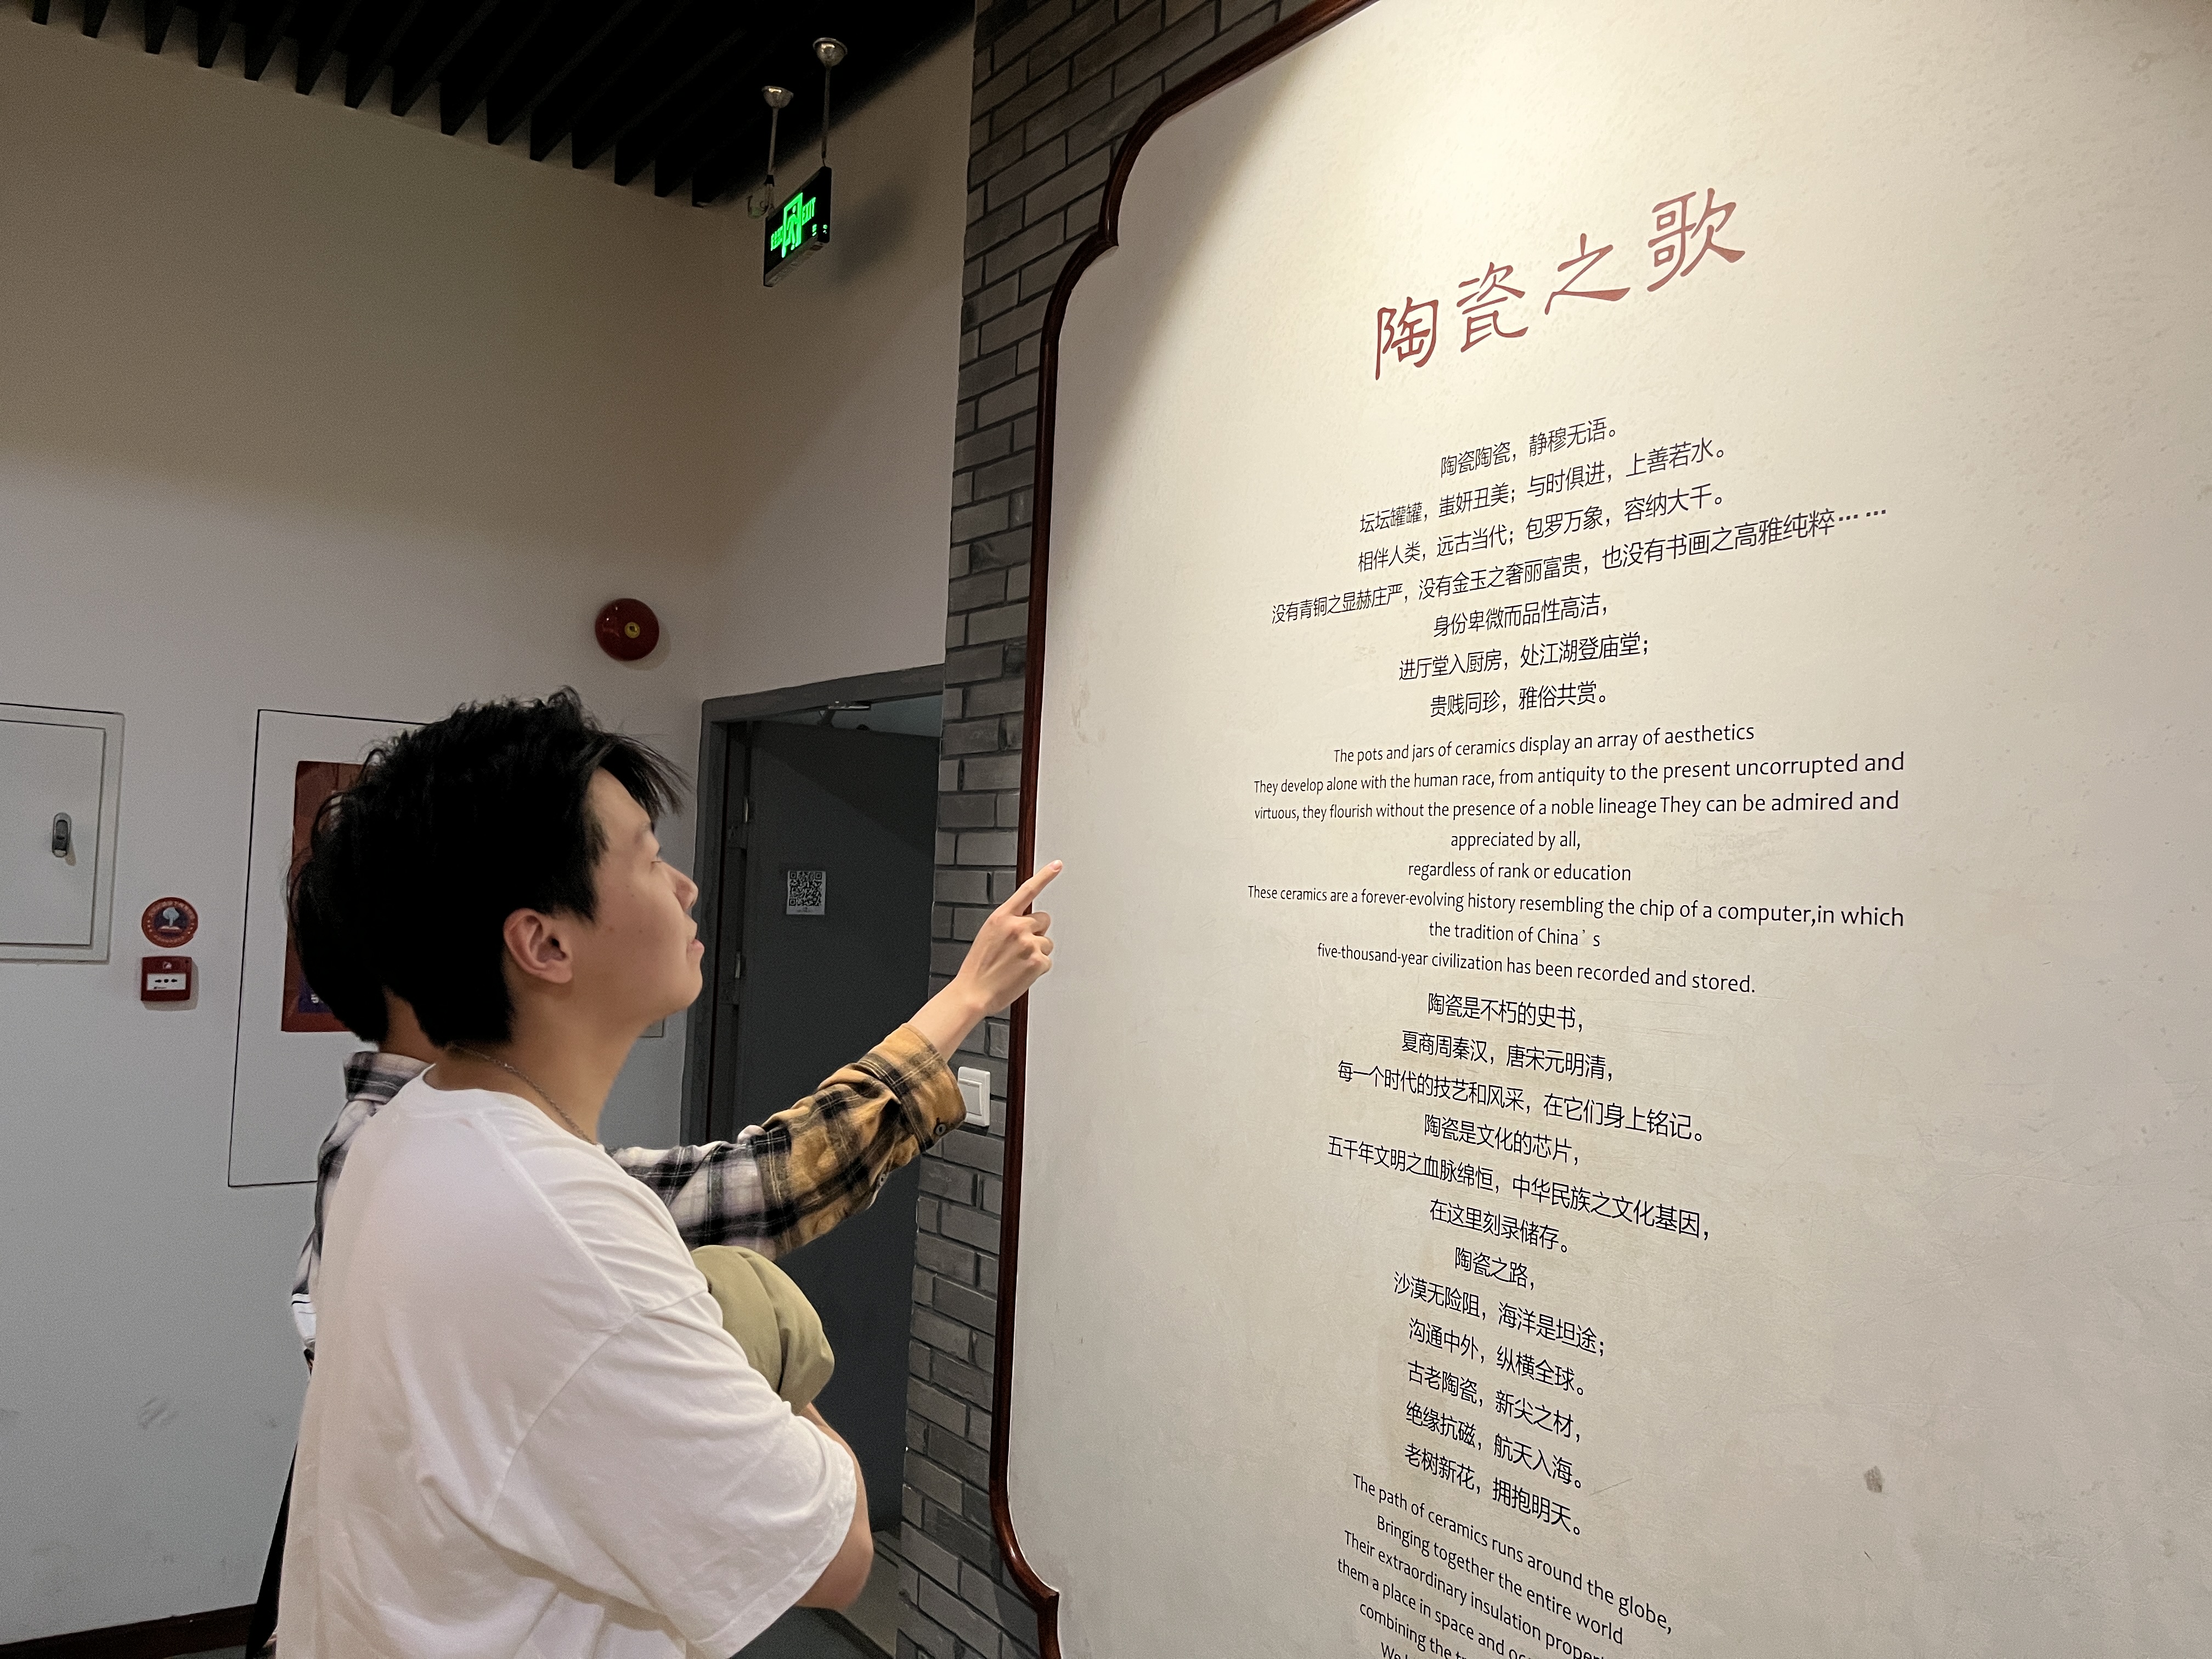 EXIT
陶瓷之歌
陶瓷陶瓷，静穆无语。
坛坛罐罐，蚩妍丑美；与时俱进，上善若水。
相伴人类，远古当代；包罗万象，容纳大千。
没有青铜之显赫庄严，没有金玉之奢丽富贵，也没有书画之高雅纯粹……
身份卑微而品性高洁，
进厅堂入厨房，处江湖登庙堂；
贵贱同珍，雅俗共赏。
The pots and jars of ceramics display an array of aesthetics
They develop alone with the human race, from antiquity to the present uncorrupted and
virtuous, they flourish without the presence of a noble lineage They can be admired and
appreciated by all,
regardless of rank or education
These ceramics are a forever-evolving history resembling the chip of a computer,in which
the tradition of China's
five-thousand-year civilization has been recorded and stored.
陶瓷是不朽的史书，
夏商周秦汉，唐宋元明清，
每一个时代的技艺和风采，在它们身上铭记。
陶瓷是文化的芯片，
五千年文明之血脉绵恒，中华民族之文化基因，
在这里刻录储存。
陶瓷之路，
沙漠无险阻，海洋是坦途；
沟通中外，纵横全球。
古老陶瓷，新尖之材，
绝缘抗磁，航天入海。
老树新花，拥抱明天。
The path of ceramics runs around the globe,
Bringing together the entire world
Their extraordinary insulation
them a place in space and
combining the
We